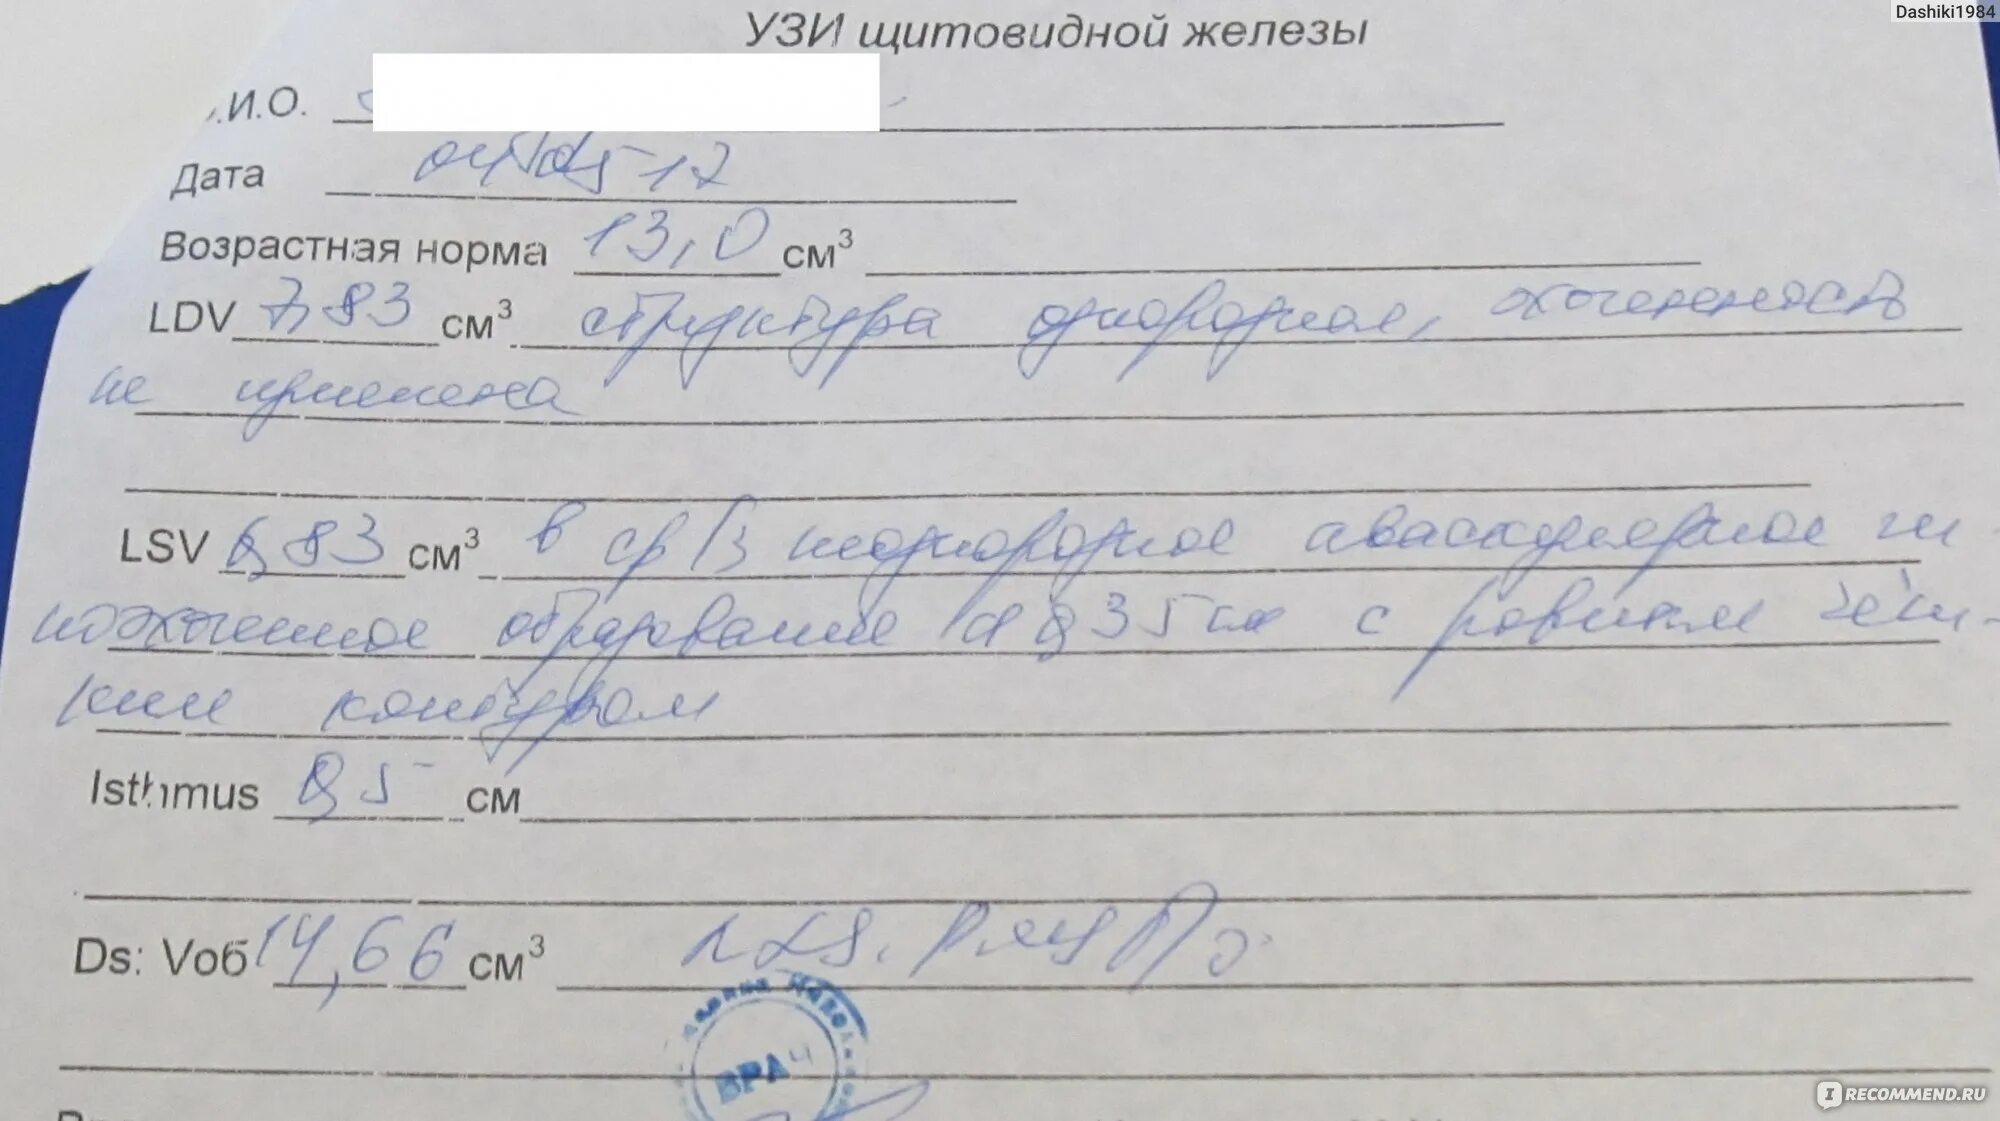 Dashiki1984
УЗИ щитовидной железы
.И.О.
Дата 04 05 17
Возрастная норма 13,0 см³
LDV 7,83 см³ структура однородная, эхогенность
не изменена
LSV 6,83 см³ в ср/з неоднородное аваскулярное ги-
поэхогенное образование d 0,35 см с ровным чёт-
ким контуром
Isthmus 0,5 см
Ds: Vоб 14,66 см³
ВРАЧ
IRECOMMEND.RU